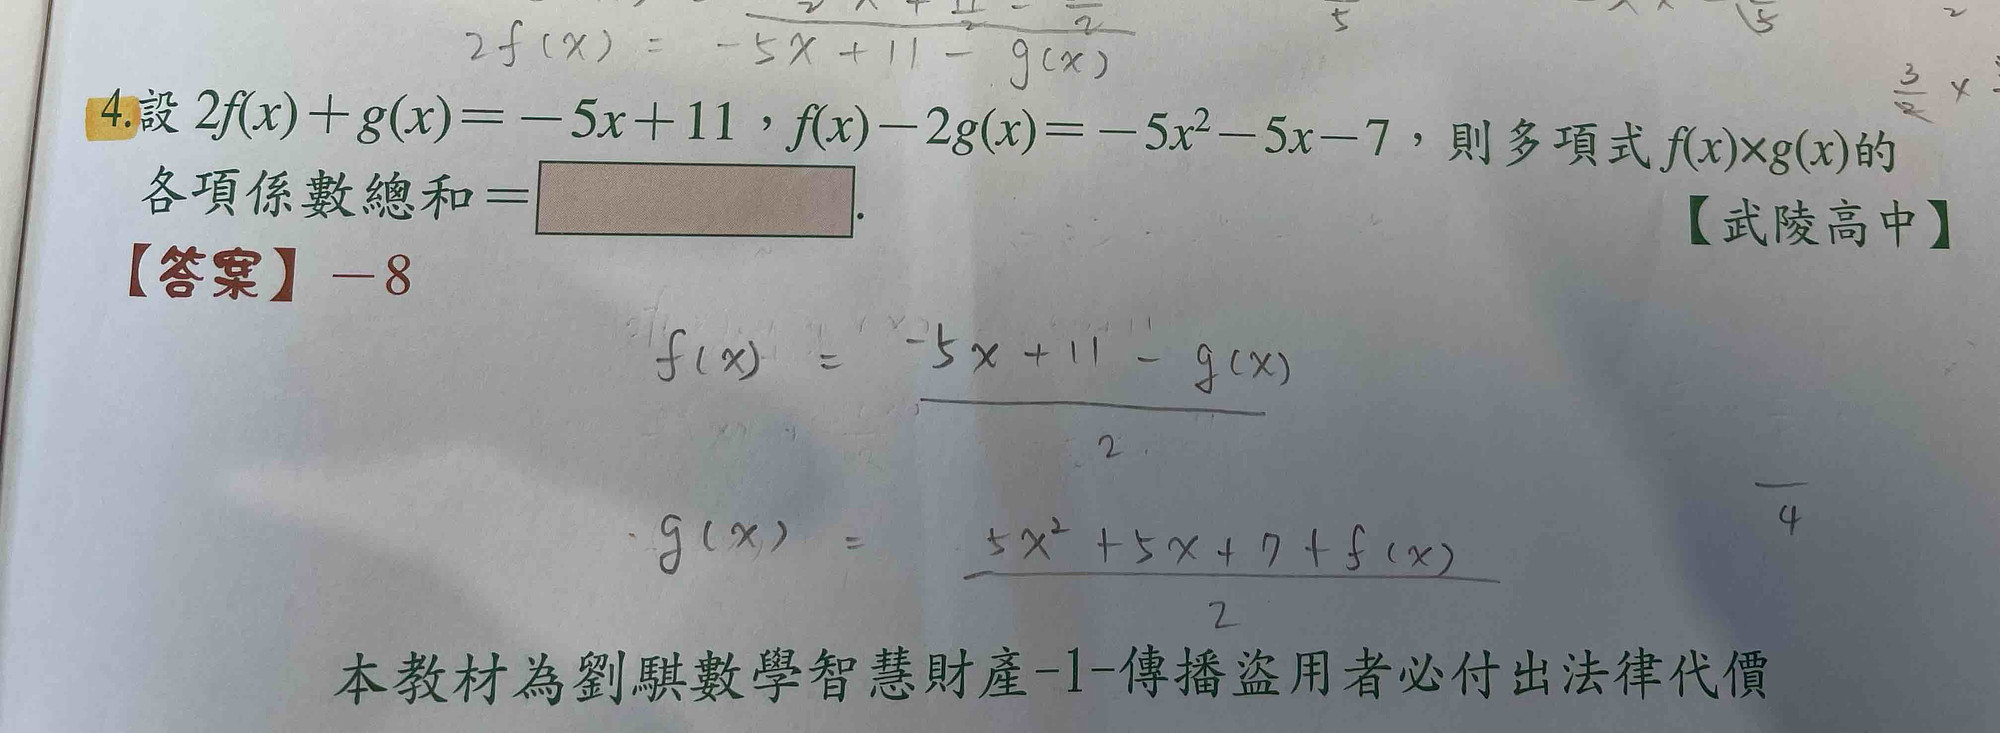 2f(x) = -5x + 11 - g(x)
4.設 2f(x)+g(x)=-5x+11,f(x)-2g(x)=-5x²-5x-7,則多項式 f(x)×g(x)的
各項係數總和=
.
【武陵高中】
【答案】-8
f(x) = -5x + 11 - g(x)
2
4
g(x) = 5x² + 5x + 7 + f(x)
2
本教材為劉騏數學智慧財產-1-傳播盜用者必付出法律代價